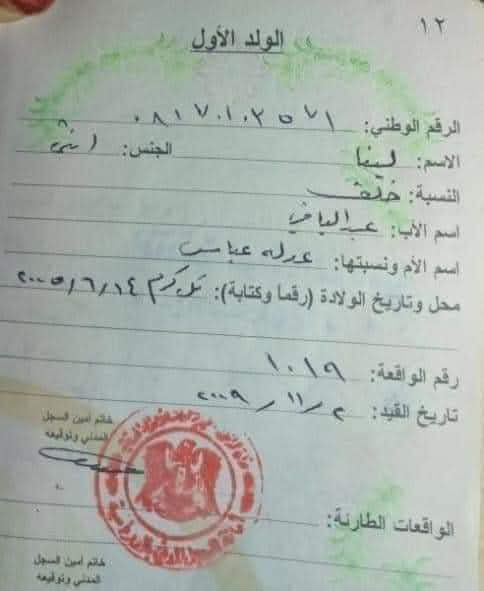 ١٢
الولد الأول
الرقم الوطني: ٠٨١٧٠١٠٢٥٧١
الاسم: لينا الجنس: انثى
النسبة: خلف
اسم الأب: عبد الباقي
اسم الأم ونسبتها: عدله عباس
محل وتاريخ الولادة (رقما وكتابة): تل كرم ٢٠٠٥/٦/١٤
رقم الواقعة: ١٠١٩
تاريخ القيد: ٢٠٠٩/١١/٢
خاتم أمين السجل
المدني وتوقيعه
الواقعات الطارئة:
خاتم أمين السجل
المدني وتوقيعه